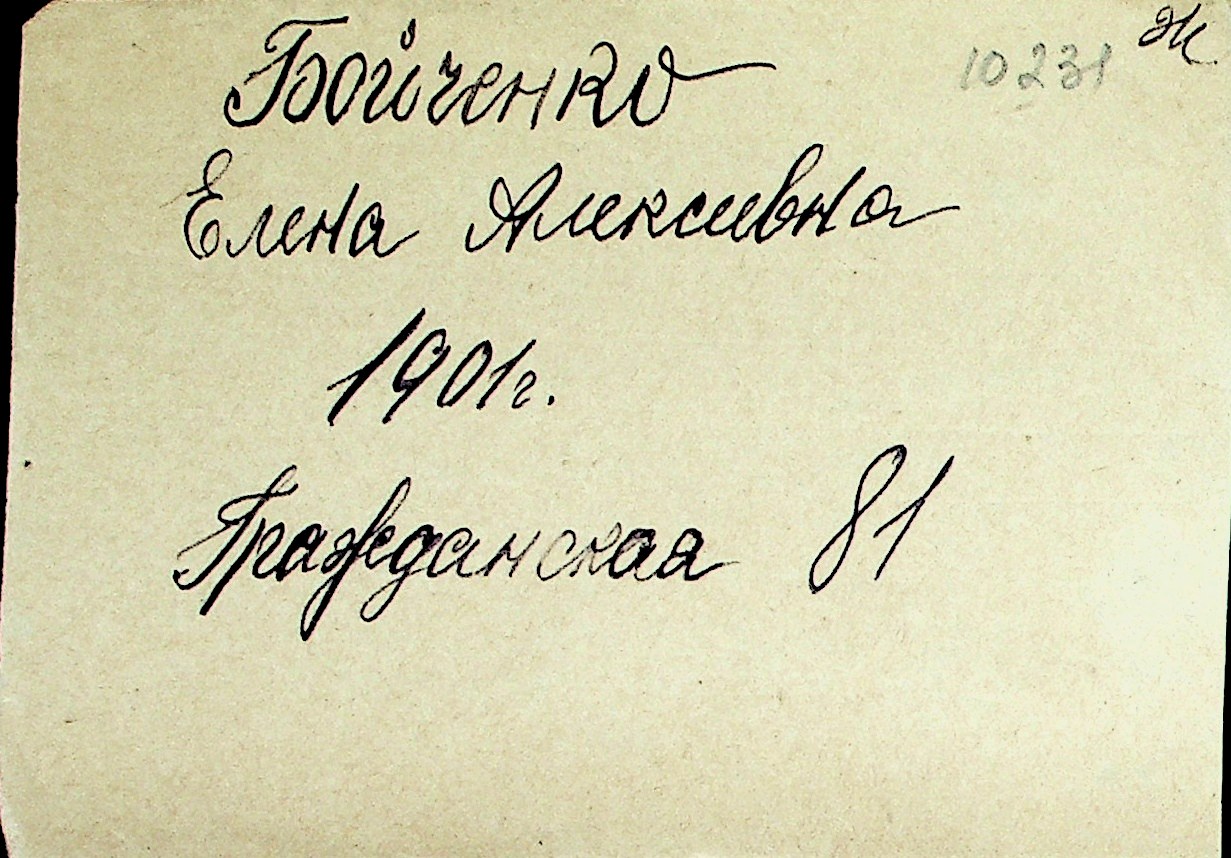 10231 Ж
Бойченко
Елена Алексивна
1901г.
Гражданская 81